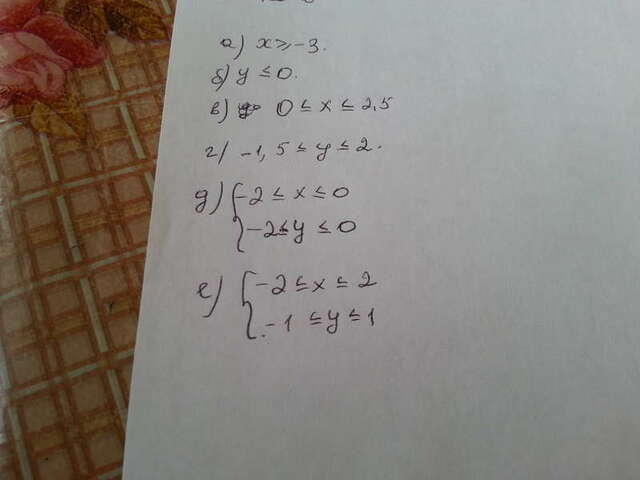 а) x ≥ -3.
б) y ≤ 0.
в) 0 ≤ x ≤ 2,5
г) -1,5 ≤ y ≤ 2.
д) { -2 ≤ x ≤ 0
-2 ≤ y ≤ 0
е) { -2 ≤ x ≤ 2
-1 ≤ y ≤ 1